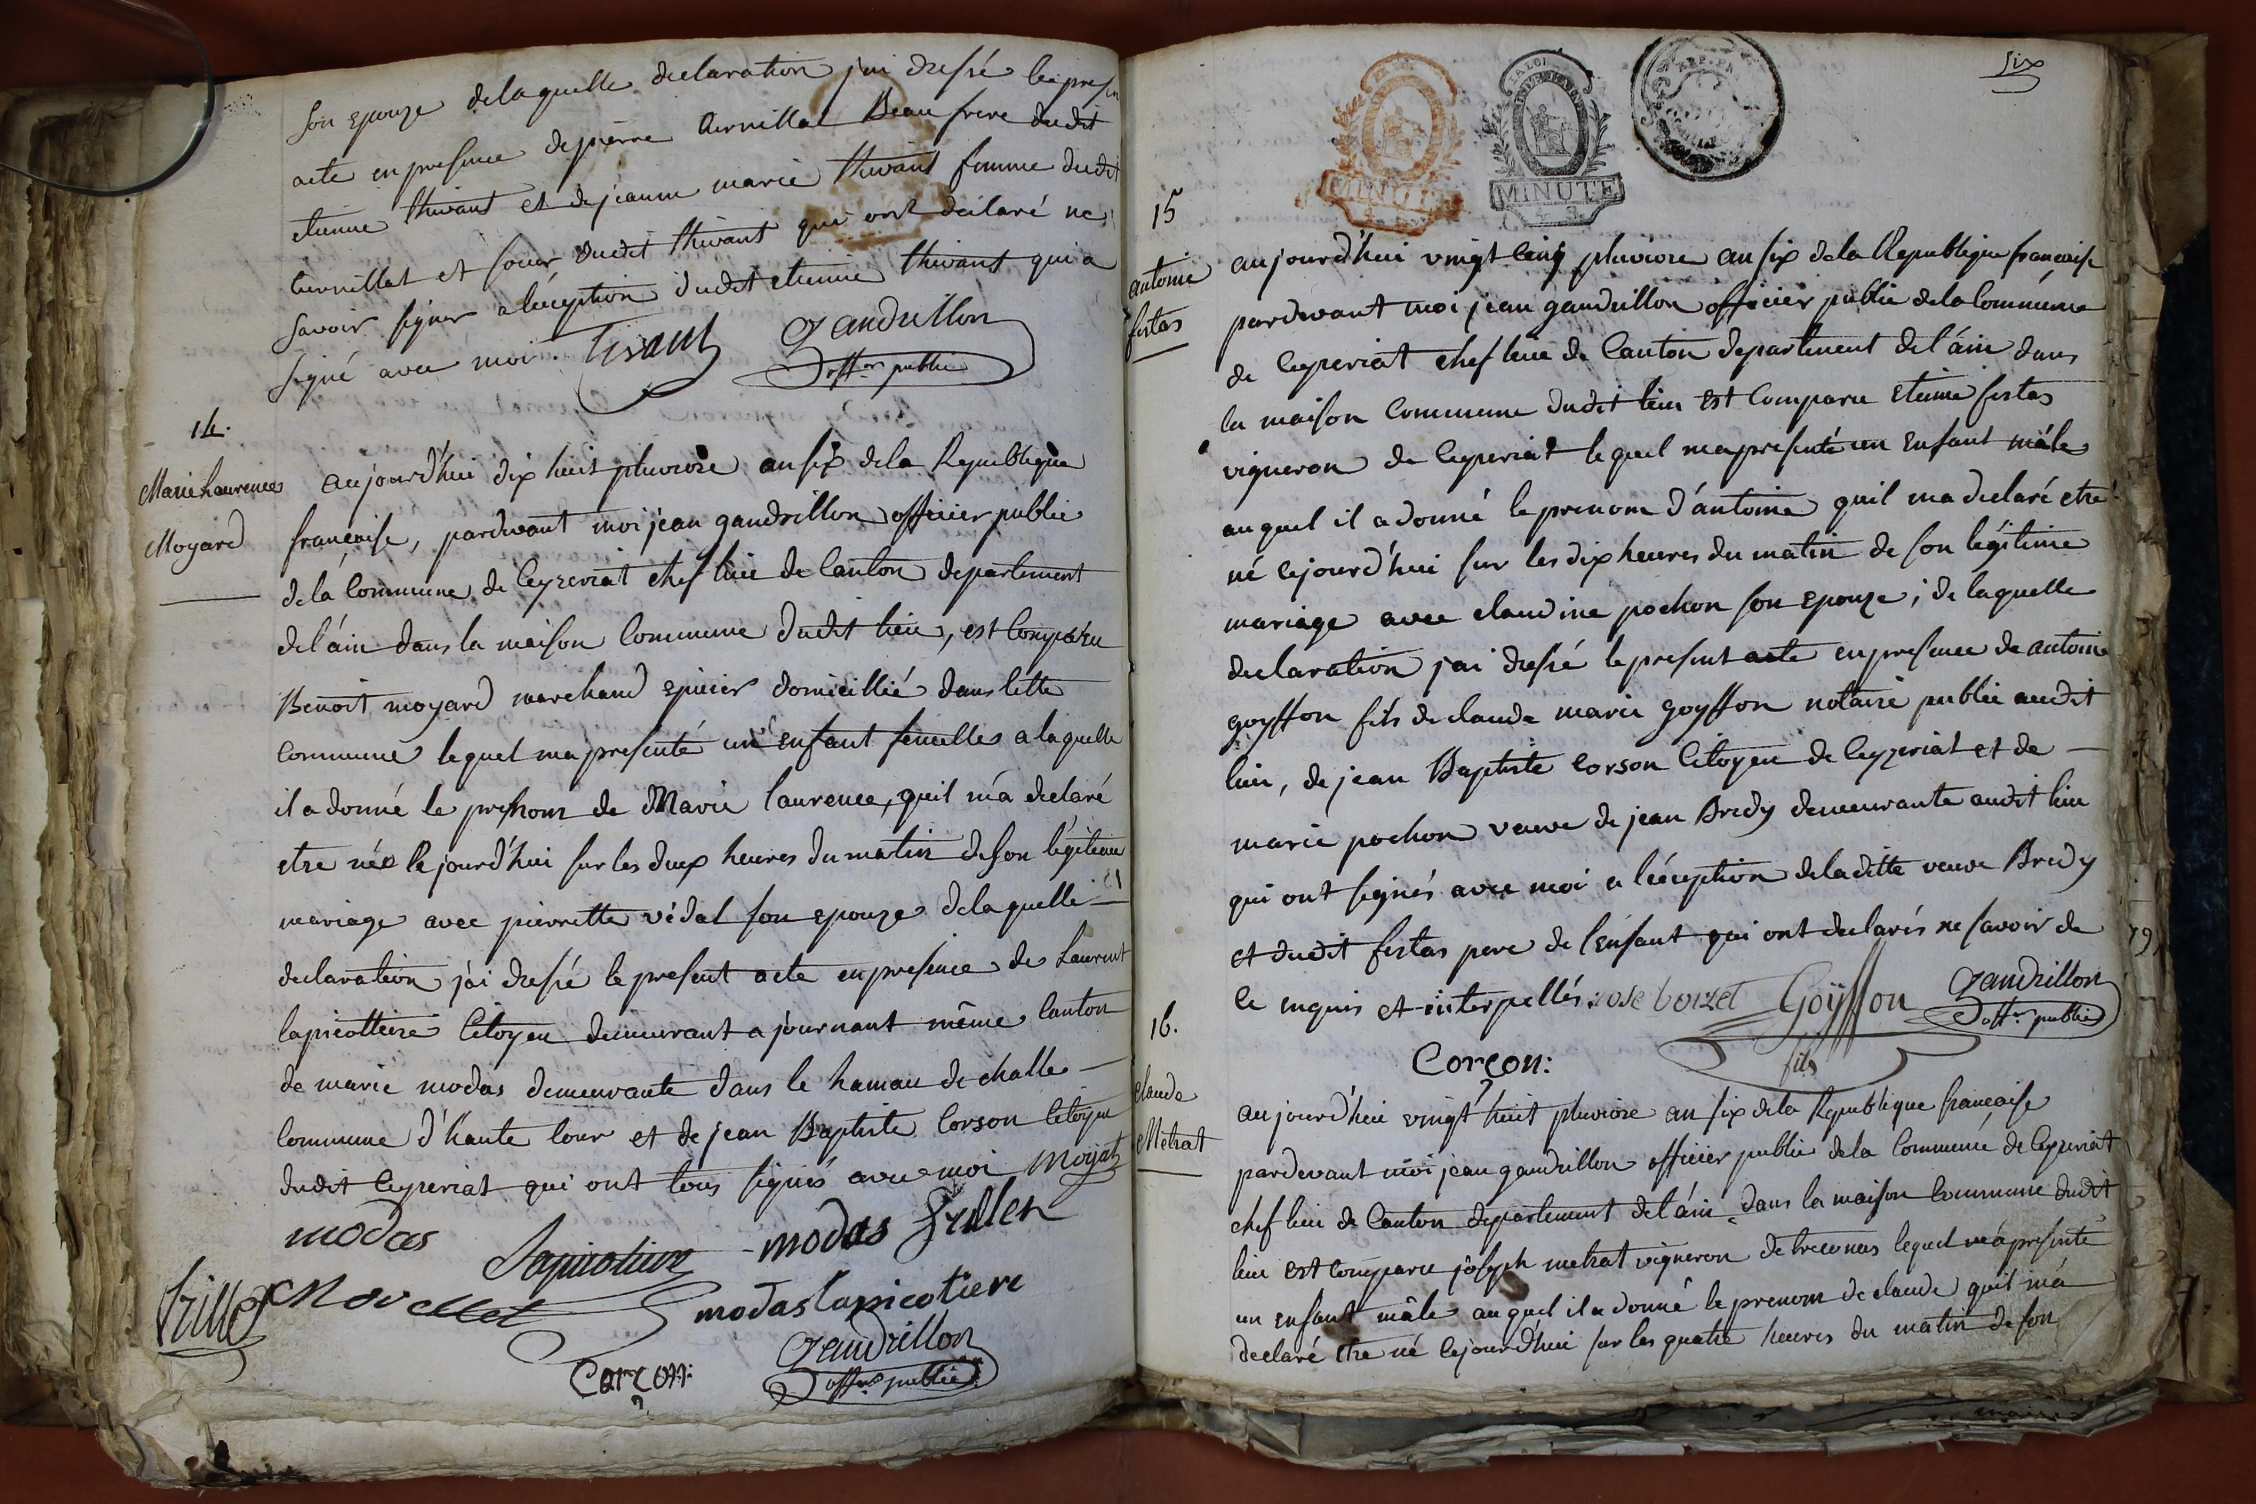 son epouze de laquelle declaration jai dressé le presen
acte en presence de pierre Curnillat Beau frere dudit
etienne thivant et de jeanne marie thivant femme dudit
Curnillat et soeur dudit thivant qui ont déclaré ne
savoir signer a léception dudit etienne thivant qui a
signé avec moi. Tivant Gandrillon
offer public
14.
Marie Laurence
Moyard
aujourd'hui dix huit pluviose an six de la Republique
française, pardevant moi jean gandrillon officier public
de la Commune de Ceyzeriat chef lieu de Canton departement
de l'ain dans la maison Commune dudit lieu, est Comparu
Benoit moyard marchand epicier domicillié dans cette
Commune lequel ma presenté un enfant femelle a laquelle
il a donné le prenom de Marie laurence, quil m'a declaré
etre née Cejourd'hui sur les deux heures du matin de son légitime
mariage avec pierrette vidal son epouze de laquelle
declaration j'ai dressé le present acte en presence de Laurent
lapicottiere Citoyen demeurant a journant même Canton
de marie modas demeurante dans le hamau de challe
Commune d'haute Cour et de jean Baptiste Corson Citoyen
dudit Ceyzeriat qui ont tous signés avec moi moyat
modas Lapicotiere modas
modas lapicotiere
Gandrillon
Corcon: offer public
Six
LA LOI
MINUTE
MINUTE
15
antoine
fistas
aujourd'hui vingt Cinq pluviose an six de la Republique française
pardevant moi jean gandrillon officier public de la Commune
de Ceyzeriat chef lieu de Canton departement de l'ain dans
la maison Commune dudit lieu est Comparu etienne fistas
vigneron de Ceyzeriat lequel ma presenté un enfant mâle
auquel il a donné le prenom d'antoine quil ma declaré etre
né cejourd'hui sur les dix heures du matin de son légitime
mariage avec claudine pochon son epouze; de laquelle
declaration j'ai dressé le present acte en presence de antoine
goyffon fils de claude marie goyffon notaire public audit
lieu, de jean Baptiste Corson Citoyen de Ceyzeriat et de
marie pochon veuve de jean Bredy demeurante audit lieu
qui ont signés avec moi a léception de laditte veuve Bredy
et dudit fistas pere de l'enfant qui ont declarés ne savoir de
ce enquis et interpellés. Goÿffon Gandrillon
fils offer public
Corçon:
16.
Claude
Metrat
aujourd'hui vingt huit pluviose an six de la Republique française
pardevant moi jean gandrillon officier public de la Commune de Ceyzeriat
chef lieu de Canton departement de l'ain dans la maison Commune dudit
lieu est comparu joseph metrat vigneron de treconnas lequel m'a presenté
un enfant mâle auquel il a donné le prenom de claude quil m'a
declaré etre né cejourd'hui sur les quatre heures du matin de son